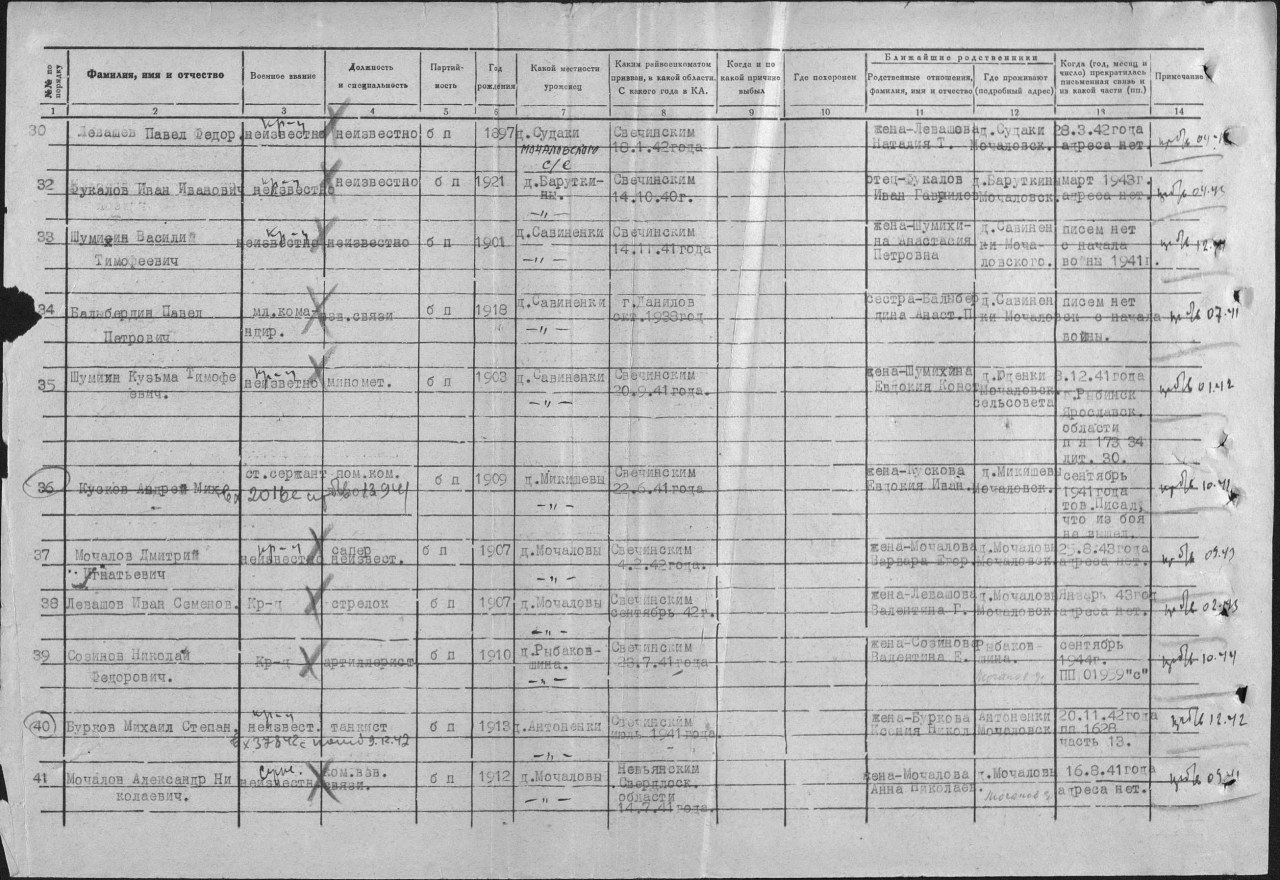 №№ по порядку
Фамилия, имя и отчество
Военное звание
Должность и специальность
Партийность
Год рождения
Какой местности уроженец
Каким райвоенкоматом призван, в какой области. С какого года в КА.
Когда и по какой причине выбыл
Где похоронен
Ближайшие родственники
Родственные отношения, фамилия, имя и отчество
Где проживают (подробный адрес)
Когда (год, месяц и число) прекратилась письменная связь и из какой части (пп.)
Примечание
1 2 3 4 5 6 7 8 9 10 11 12 13 14
кр-ц
30 Левашев Павел Федор. неизвестно неизвестно б п 1897 д.Судаки Свечинским жена-Левашова д.Судаки 28.3.42года
мочаловского 18.1.42года Наталия Т. Мочаловск. адреса нет.
с/с
кр-ц
32 Фукалов Иван Иванович неизвестно неизвестно б п 1921 д.Баруткины. Свечинским отец-Фукалов д.Баруткины март 1943г.
-„- 14.10.40г. Иван Гаврилов Мочаловск. адреса нет.
кр-ц
33 Шумихин Василий неизвестно неизвестно б п 1901 д.Савиненки Свечинским жена-Шумихи- д.Савинен писем нет
Тимофеевич -„- 14.11.41года на Анастасия ки Моча- с начала
Петровна ловского. войны 1941г.
34 Балыбердин Павел мл.кома- ров.связи б п 1918 д.Савиненки г.Данилов сестра-Балыбер д.Савинен писем нет
Петрович ндир. -„- окт.1938год дина Анаст.П ки Мочаловск с начала
войны.
07.41
кр-ц
35 Шумихн Кузьма Тимофе неизветно миномет. б п 1903 д.Савиненки Свечинским жена-Шумихина д.Юденки 8.12.41года
евич. -„- 20.9.41года. Евдокия Конст Мочаловск. г.Рыбинск
сельсовета Ярославск.
области
п я 173 34
лит. 30.
01.42
36 Кусков Андрей Мих. ст.сержант пом.ком. б п 1909 д.Микишевы Свечинским жена-Кускова д.Микишевы сентябрь
-„- 22.6.41года Евдокия Иван. Мочаловск. 1941года
тов.Писал,
что из боя
не вышел.
10.41
кр-ц
37 Мочалов Дмитрий неизвестно сапер неизвест. б п 1907 д.Мочаловы Свечинским жена-Мочалова д.Мочаловы 25.8.43года
Игнатьевич -„- 4.2.42года. Варвара Егор. Мочаловск адреса нет.
38 Левашов Иван Семенов. Кр-ц стрелок б п 1907 д.Мочаловы Свечинским жена-Левашова д.Мочаловы Январь 43год
-„- сентябрь 42г. Валентина Г. Мочаловск адреса нет.
39 Созинов Николай Кр-ц артиллерист б п 1910 д.Рыбаков- Свечинским жена-Созинова Рыбаков- сентябрь
Федорович. шина. 23.7.41года Валентина Е. шина. 1944г.
-„- ПП 01959"с"
10.44
кр-ц
40 Бурков Михаил Степан. неизвест. танкист б п 1913 д.Антоненки Свечинским жена-Буркова Антоненки 20.11.42года
-„- июль 1941года. Ксения Никол Мочаловск пп 1628
часть 13.
12.42
41 Мочалов Александр Ни неизвестно ком.взв. б п 1912 д.Мочаловы Невьянским жена-Мочалова д.Мочаловы 16.8.41года
колаевич. связи. -„- Свердлоск. Анна Николаев. адреса нет.
области
14.7.41года.